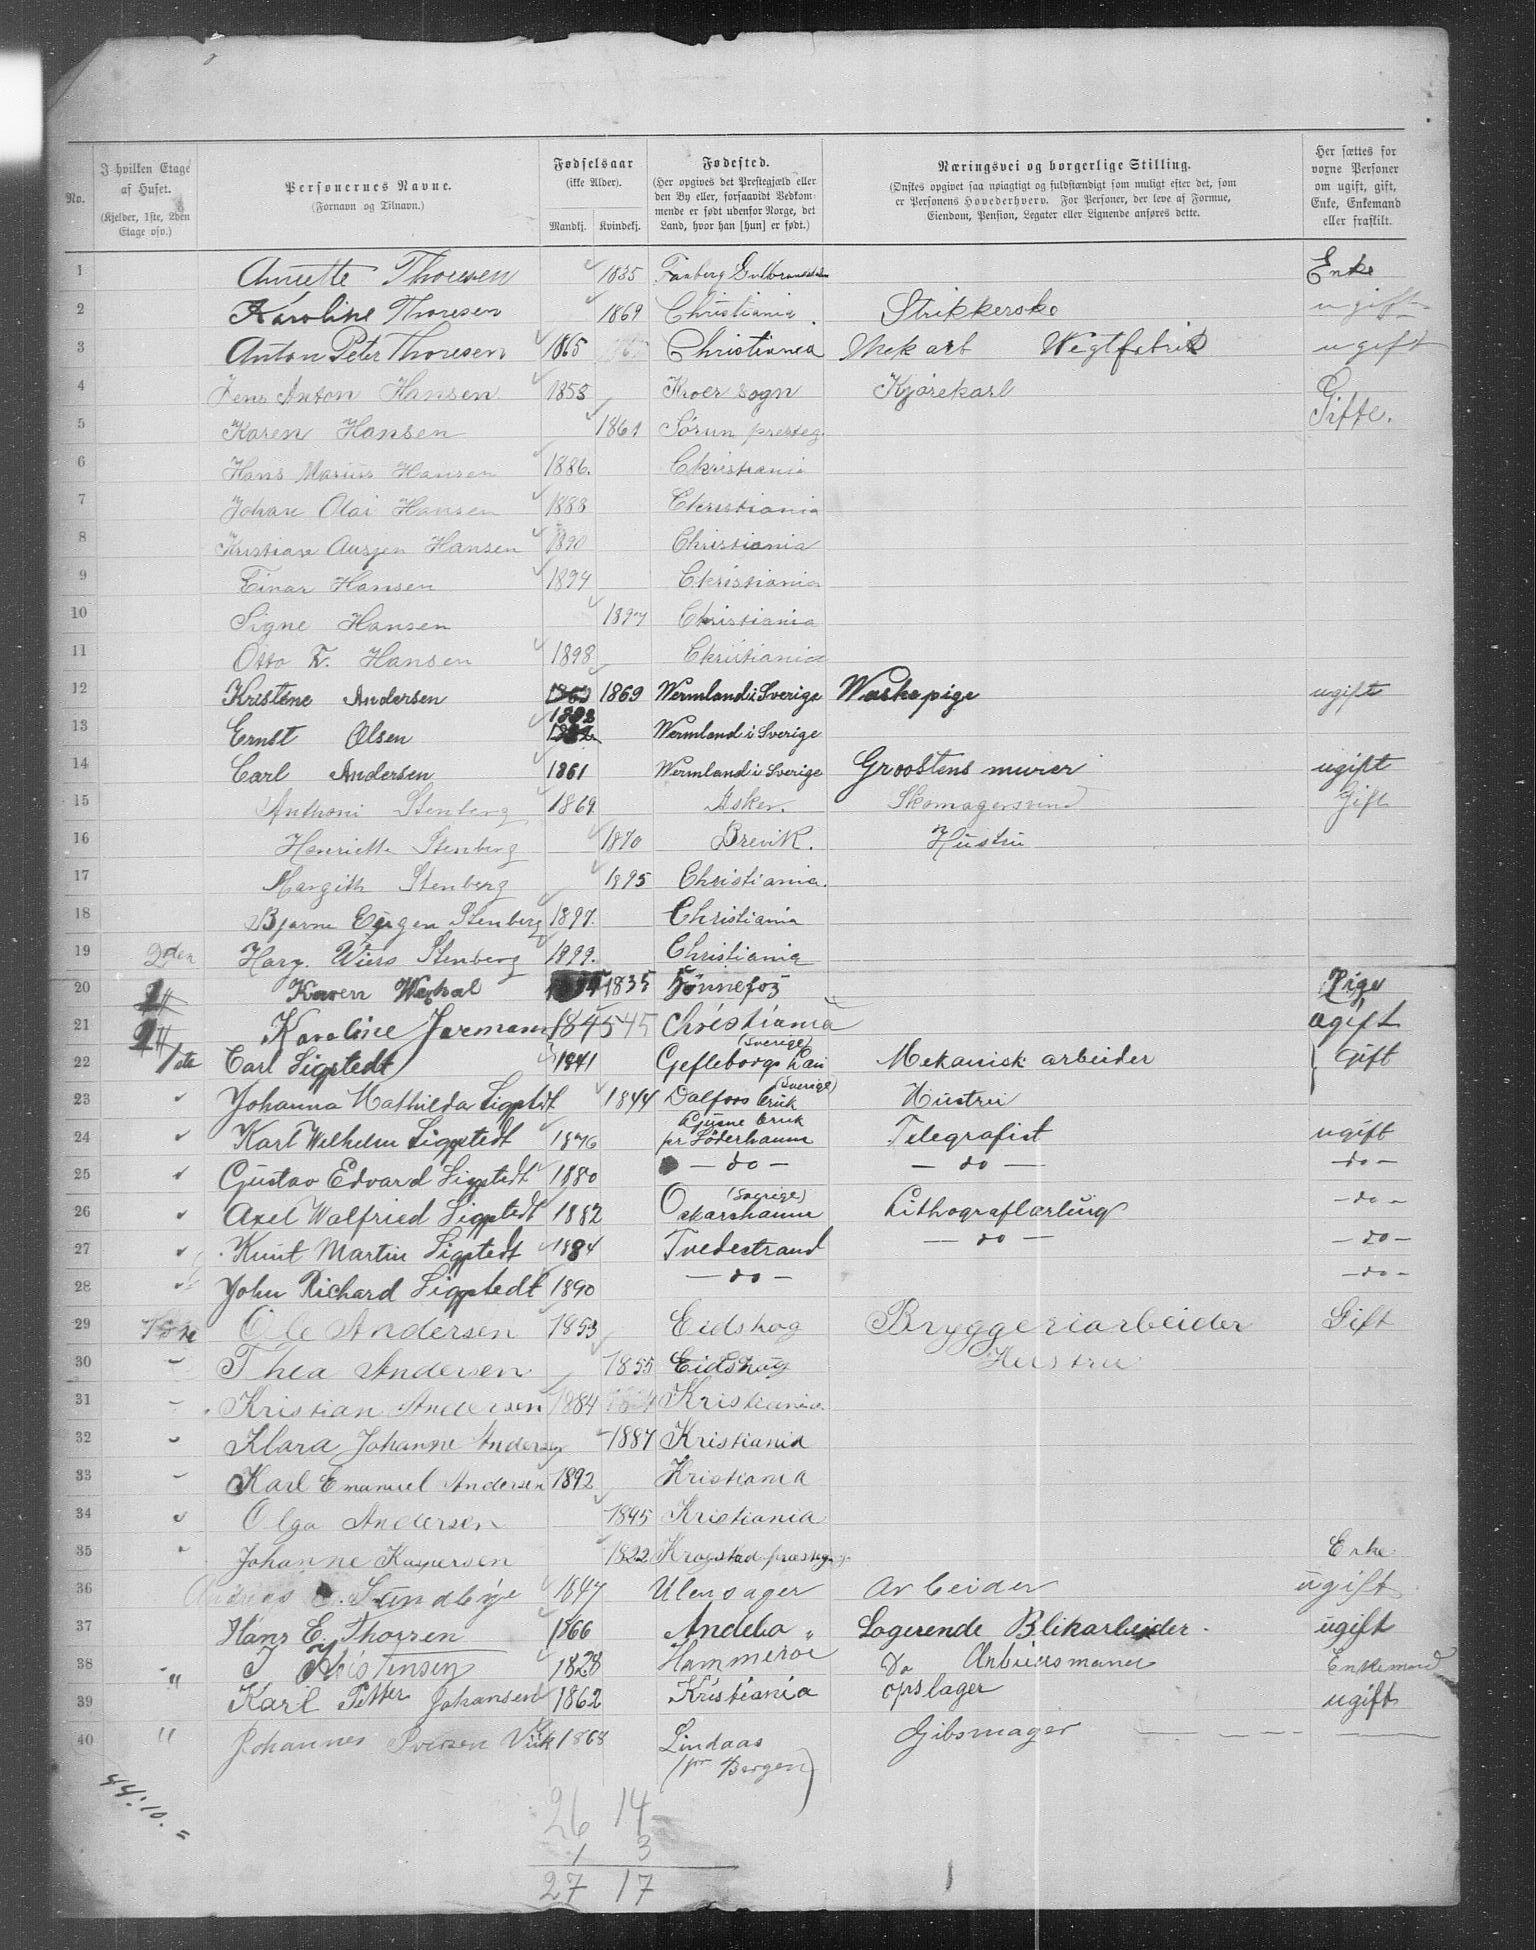 No.
I hvilken Etage af Huset. (Kjelder, 1ste, 2den Etage osv.)
Personernes Navne. (Fornavn og Tilnavn.)
Fødselsaar (ikke Alder). Mandkj. Kvindekj.
Fødested. (Her opgives det Prestegjæld eller den By eller, forsaavidt Vedkommende er født udenfor Norge, det Land, hvor han [hun] er født.)
Næringsvei og borgerlige Stilling. (Ønskes opgivet saa nøiagtigt og fuldstændigt som muligt efter det, som er Personens Hovederhverv. For Personer, der leve af Formue, Eiendom, Pension, Legater eller Lignende anføres dette.
Her sættes for voxne Personer om ugift, gift, Enke, Enkemand eller fraskilt.
1 Annette Thoresen 1835 Faaberg Gulbrandsdalen Enke
2 Karoline Thoresen 1869 Christiania Strikkerske ugift
3 Anton Peter Thoresen 1865 Christiania Mek arb Vegtfabrik ugift
4 Jens Anton Hansen 1853 Kroer sogn Kjørekarl
5 Karen Hansen 1861 Sørum presteg. Gifte.
6 Hans Marius Hansen 1886. Christiania
7 Johan Olai Hansen 1888 Christiania
8 Kristian Hansen 1890 Christiania
9 Einar Hansen 1894 Christiania
10 Signe Hansen 1897 Christiania
11 Otto F. Hansen 1898 Christiania
12 Kristine Andersen 1869 Wermland i Sverige Waskepige ugift
13 Ernst Olsen Wermland i Sverige
14 Carl Andersen 1861 Wermland i Sverige Groostens murer ugift
15 Anthoni Stenberg 1869 Asker. Skomagersvend Gift
16 Henriette Stenberg 1870 Brevik. Hustru
17 Margith Stenberg 1895 Christiania.
18 Bjarne Eugen Stenberg 1897. Christiania
19 2den Hary. Stenberg 1899. Christiania
20 Karen 1835 Hønnefos Pige
21 Karoline Jormann 1845 45 Christiania ugift
22 1ste Carl Sigstedt 1841 Gefleborgs Län (Sverige) Mekanisk arbeider Gift
23 " Johanna Mathilda Sigstedt 1844 Dalfors bruk (Sverige) Hustru
24 " Karl Wilhelm Sigstedt 1876 Ljusne bruk pr Söderhamn Telegrafist ugift
25 " Gustav Edvard Sigstedt 1880 - do - - do - - do -
26 " Axel Walfried Sigstedt 1882 Oskarshamn (Sverige) Lithograflærling - do -
27 " Knut Martin Sigstedt 1884 Tvedestrand - do - - do -
28 " John Richard Sigstedt 1890 - do - - do -
29 Ole Andersen 1853 Eidskog Bryggeriarbeider Gift
30 " Thea Andersen 1855 Eidskog Hustru
31 " Kristian Andersen 1884 Kristiania
32 " Klara Johanne Andersen 1887 Kristiania
33 " Karl Emanuel Andersen 1892 Kristiania
34 " Olga Andersen 1895 Kristiania
35 " Johanne Kaspersen 1822 Krogstad Enke
36 Sundbye 1847 Ulensager Arbeider ugift
37 Hans E. Thorsen 1866 Andebo " Logerende Blikarbeider. ugift
38 " Kristensen 1828 Hammerøe Do Arbeidsmand Enkemand
39 Karl Petter Johansen 1862 Kristiania opslager ugift
40 " Johannes Iversen Vik 1868 Lindaas (pr Bergen) Gibsmager
44:10. =
26 14
1 3
27 17